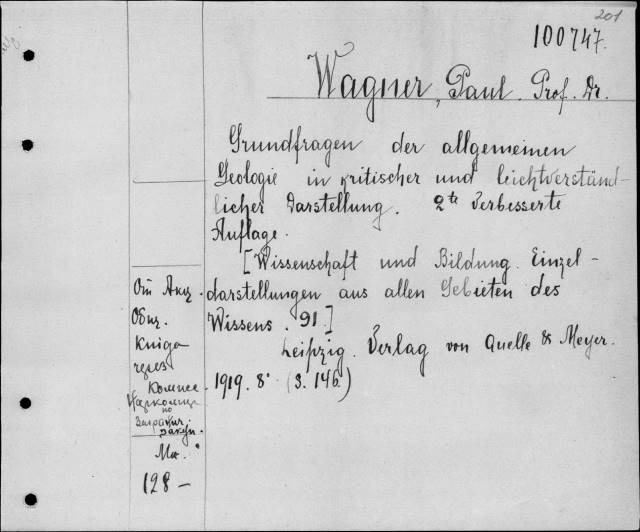 201
100747.
Wagner, Paul. Prof. Dr.
Grundfragen der allgemeinen
Geologie in kritischer und leichtverständ-
licher Darstellung. 2te Verbesserte
Auflage.
[Wissenschaft und Bildung. Einzel-
darstellungen aus allen Gebieten des
Wissens. 91.]
Leipzig. Verlag von Quelle & Meyer.
1919. 8° (S. 146)
От Акц.
Общ.
Книга
через
Комисс.
по
закуп.
Мк.
128 —